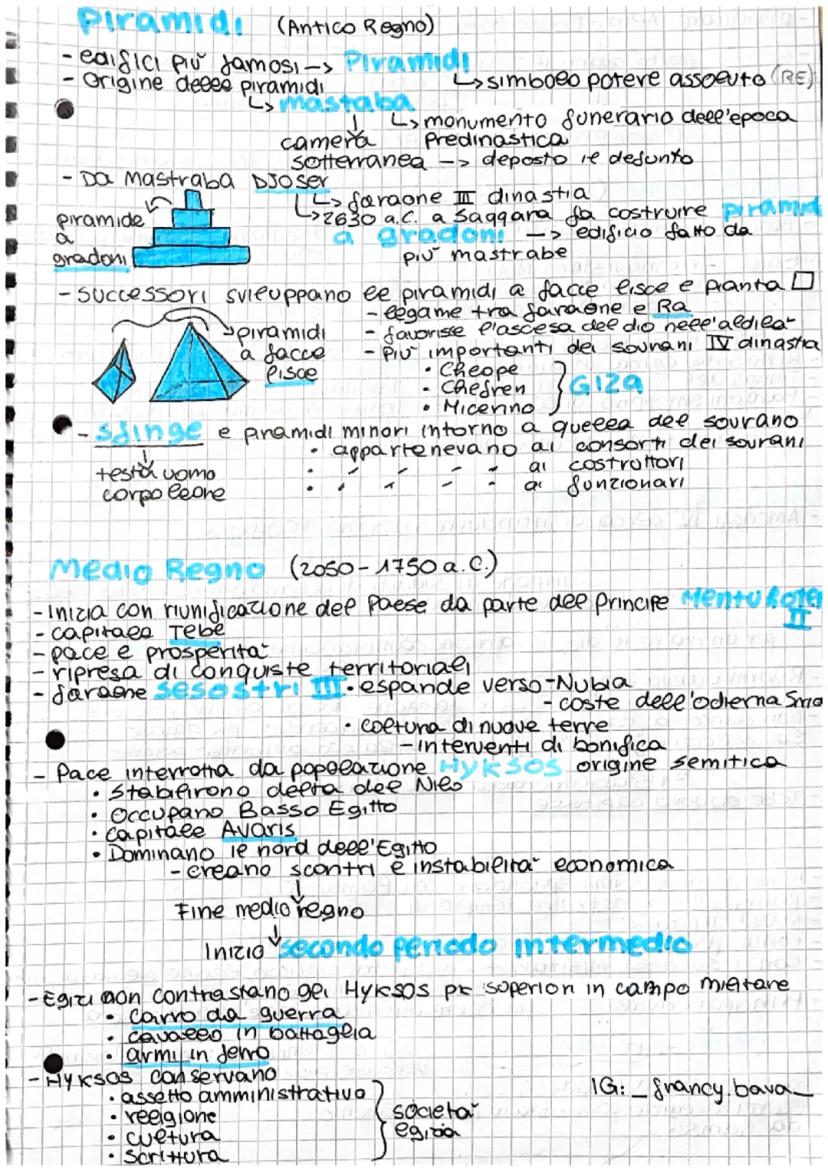 Piramidi (Antico Regno)
- edifici più famosi -> Piramidi
↳ simbolo potere assoluto (RE)
- Origine delle piramidi
↳ mastaba
↳ monumento funerario dell'epoca
Predinastica
camera
sotterranea -> deposto il defunto
- Da Mastraba DJOSER
↳ faraone III dinastia
↳ 2630 a.C. a Saqqara fa costruire piramid
a gradoni -> edificio fatto da
più mastrabe
piramide
a
gradoni
- Successori sviluppano le piramidi a facce lisce e pianta □
- legame tra faraone e Ra
- favorisce l'ascesa del dio nell'aldila
- più importanti dei sovrani IV dinastia
piramidi
a facce
lisce
• Cheope
• Chefren
• Micerino
GIZA
- sfinge e piramidi minori intorno a quella del sovrano
• appartenevano ai consorti dei sovrani
testa uomo
corpo leone
• " " " " ai costruttori
• " " " " ai funzionari
Medio Regno (2050 - 1750 a.C.)
- Inizia con riunificazione del Paese da parte del Principe Mentuhotep II
- capitale Tebe
- pace e prosperità
- ripresa di conquiste territoriali
- faraone Sesostri III • espande verso - Nubia
- coste dell'odierna Siria
• coltura di nuove terre
- interventi di bonifica
- Pace interrotta da popolazione Hyksos origine semitica
• Stabilirono delta del Nilo
• Occupano Basso Egitto
• capitale Avaris
• Dominano il nord dell'Egitto
- creano scontri e instabilità economica
Fine medio regno
Inizio secondo periodo intermedio
- Egizi non contrastano gli Hyksos pk superiori in campo militare
• carro da guerra
• cavallo in battaglia
• armi in ferro
- Hyksos conservano
• assetto amministrativo
• religione
• cultura
• scrittura
società
egizia
IG: _francy.bava_